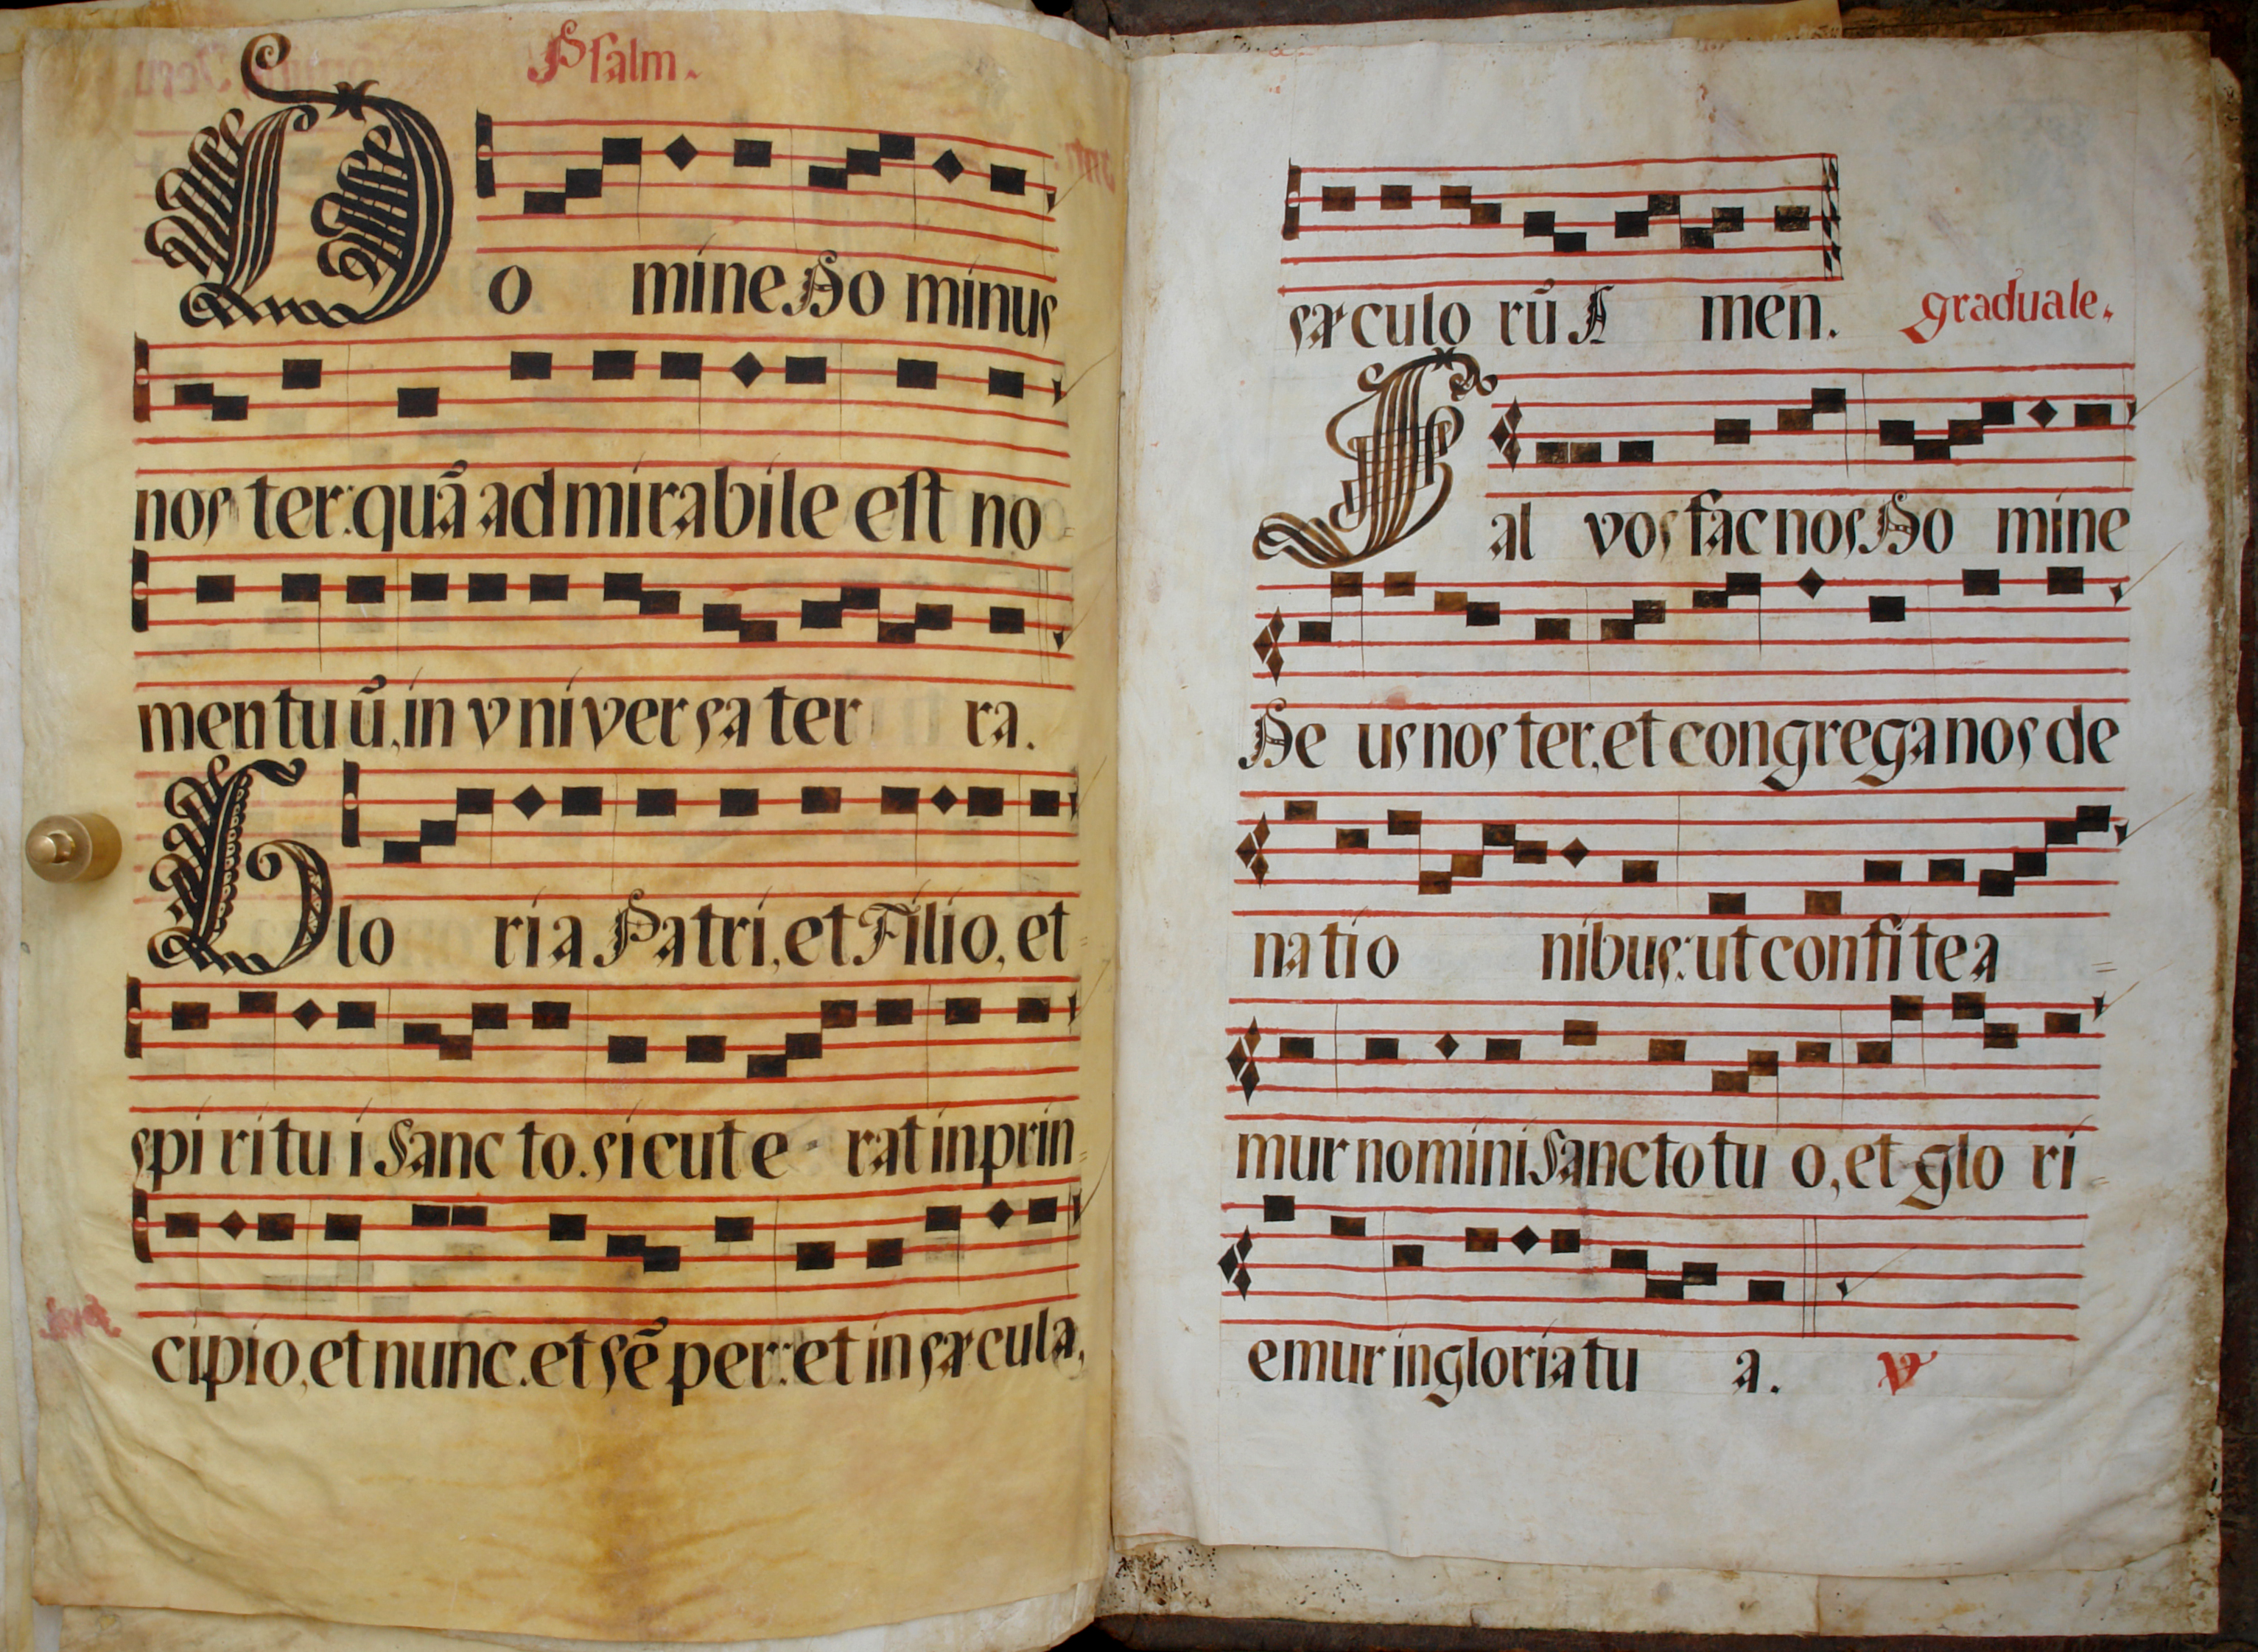 Psalm.
Do mine Do minus
nos ter: quã ad mirabile est no
men tu ũ, in vniversa ter ra.
Glo ria Patri, et Filio, et
spi ri tu i Sanc to. sicut e rat in prin
cipio, et nunc. et sẽ per: et in sæcula,
sæculo rũ A men. graduale.
Sal vos fac nos Do mine
De us nos ter, et congrega nos de
na tio nibus: ut confi te a
mur nomini Sancto tu o, et glo ri
emur in gloria tu a. V